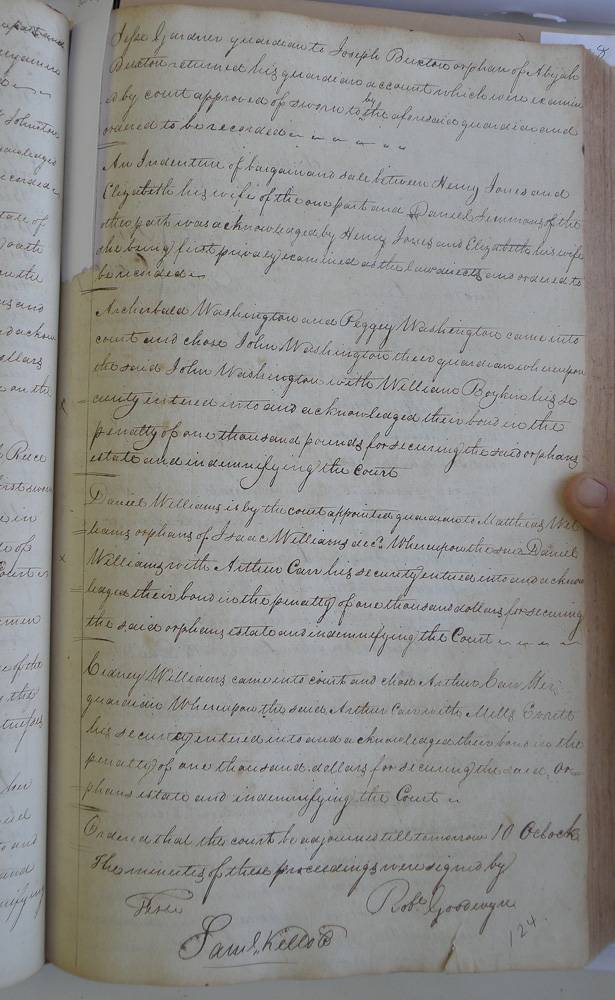 Jesse Gardner guardian to Joseph Buxton orphan of Abijah
Buxton returned his guardian account which were examin
d by court approved of sworn to by the aforesaid guardian and
ordered to be recorded
An Indenture of bargain and sale between Henry Jones and
Elizabeth his wife of the one part and Daniel Simmons of the
other part was acknowledged by Henry Jones and Elizabeth his wife
she being first privily examined as the law directs and ordered to
be recorded
Archerbald Washington and Peggey Washington came into
court and chose John Washington their guardian whereupon
the said John Washington with William Boykin his se
curity entered into and acknowledged their bond in the
penalty of one thousand pounds for securing the said orphans
estate and indemnifying the Court
Daniel Williams is by the court appointed guardian to Matthew Wil
liams orphan of Isaac Williams decd. Whereupon the said Daniel
Williams with Arthur Carr his security entered into and acknow
ledged their bond in the penalty of one thousand dollars for securing
the said orphans estate and indemnifying the Court
Cidney Williams came into court and chose Arthur Carr Her
guardian Whereupon the said Arthur Carr with Mills Everitt
his security entered into and acknowledged their bond in the
penalty of one thousand dollars for securing the said Or
phans estate and indemnifying the Court
Ordered that the court be adjourned till tomorrow 10 Oclock
The minutes of these proceedings were signed by
Robt. Goodwyn
Saml. Kello
124.